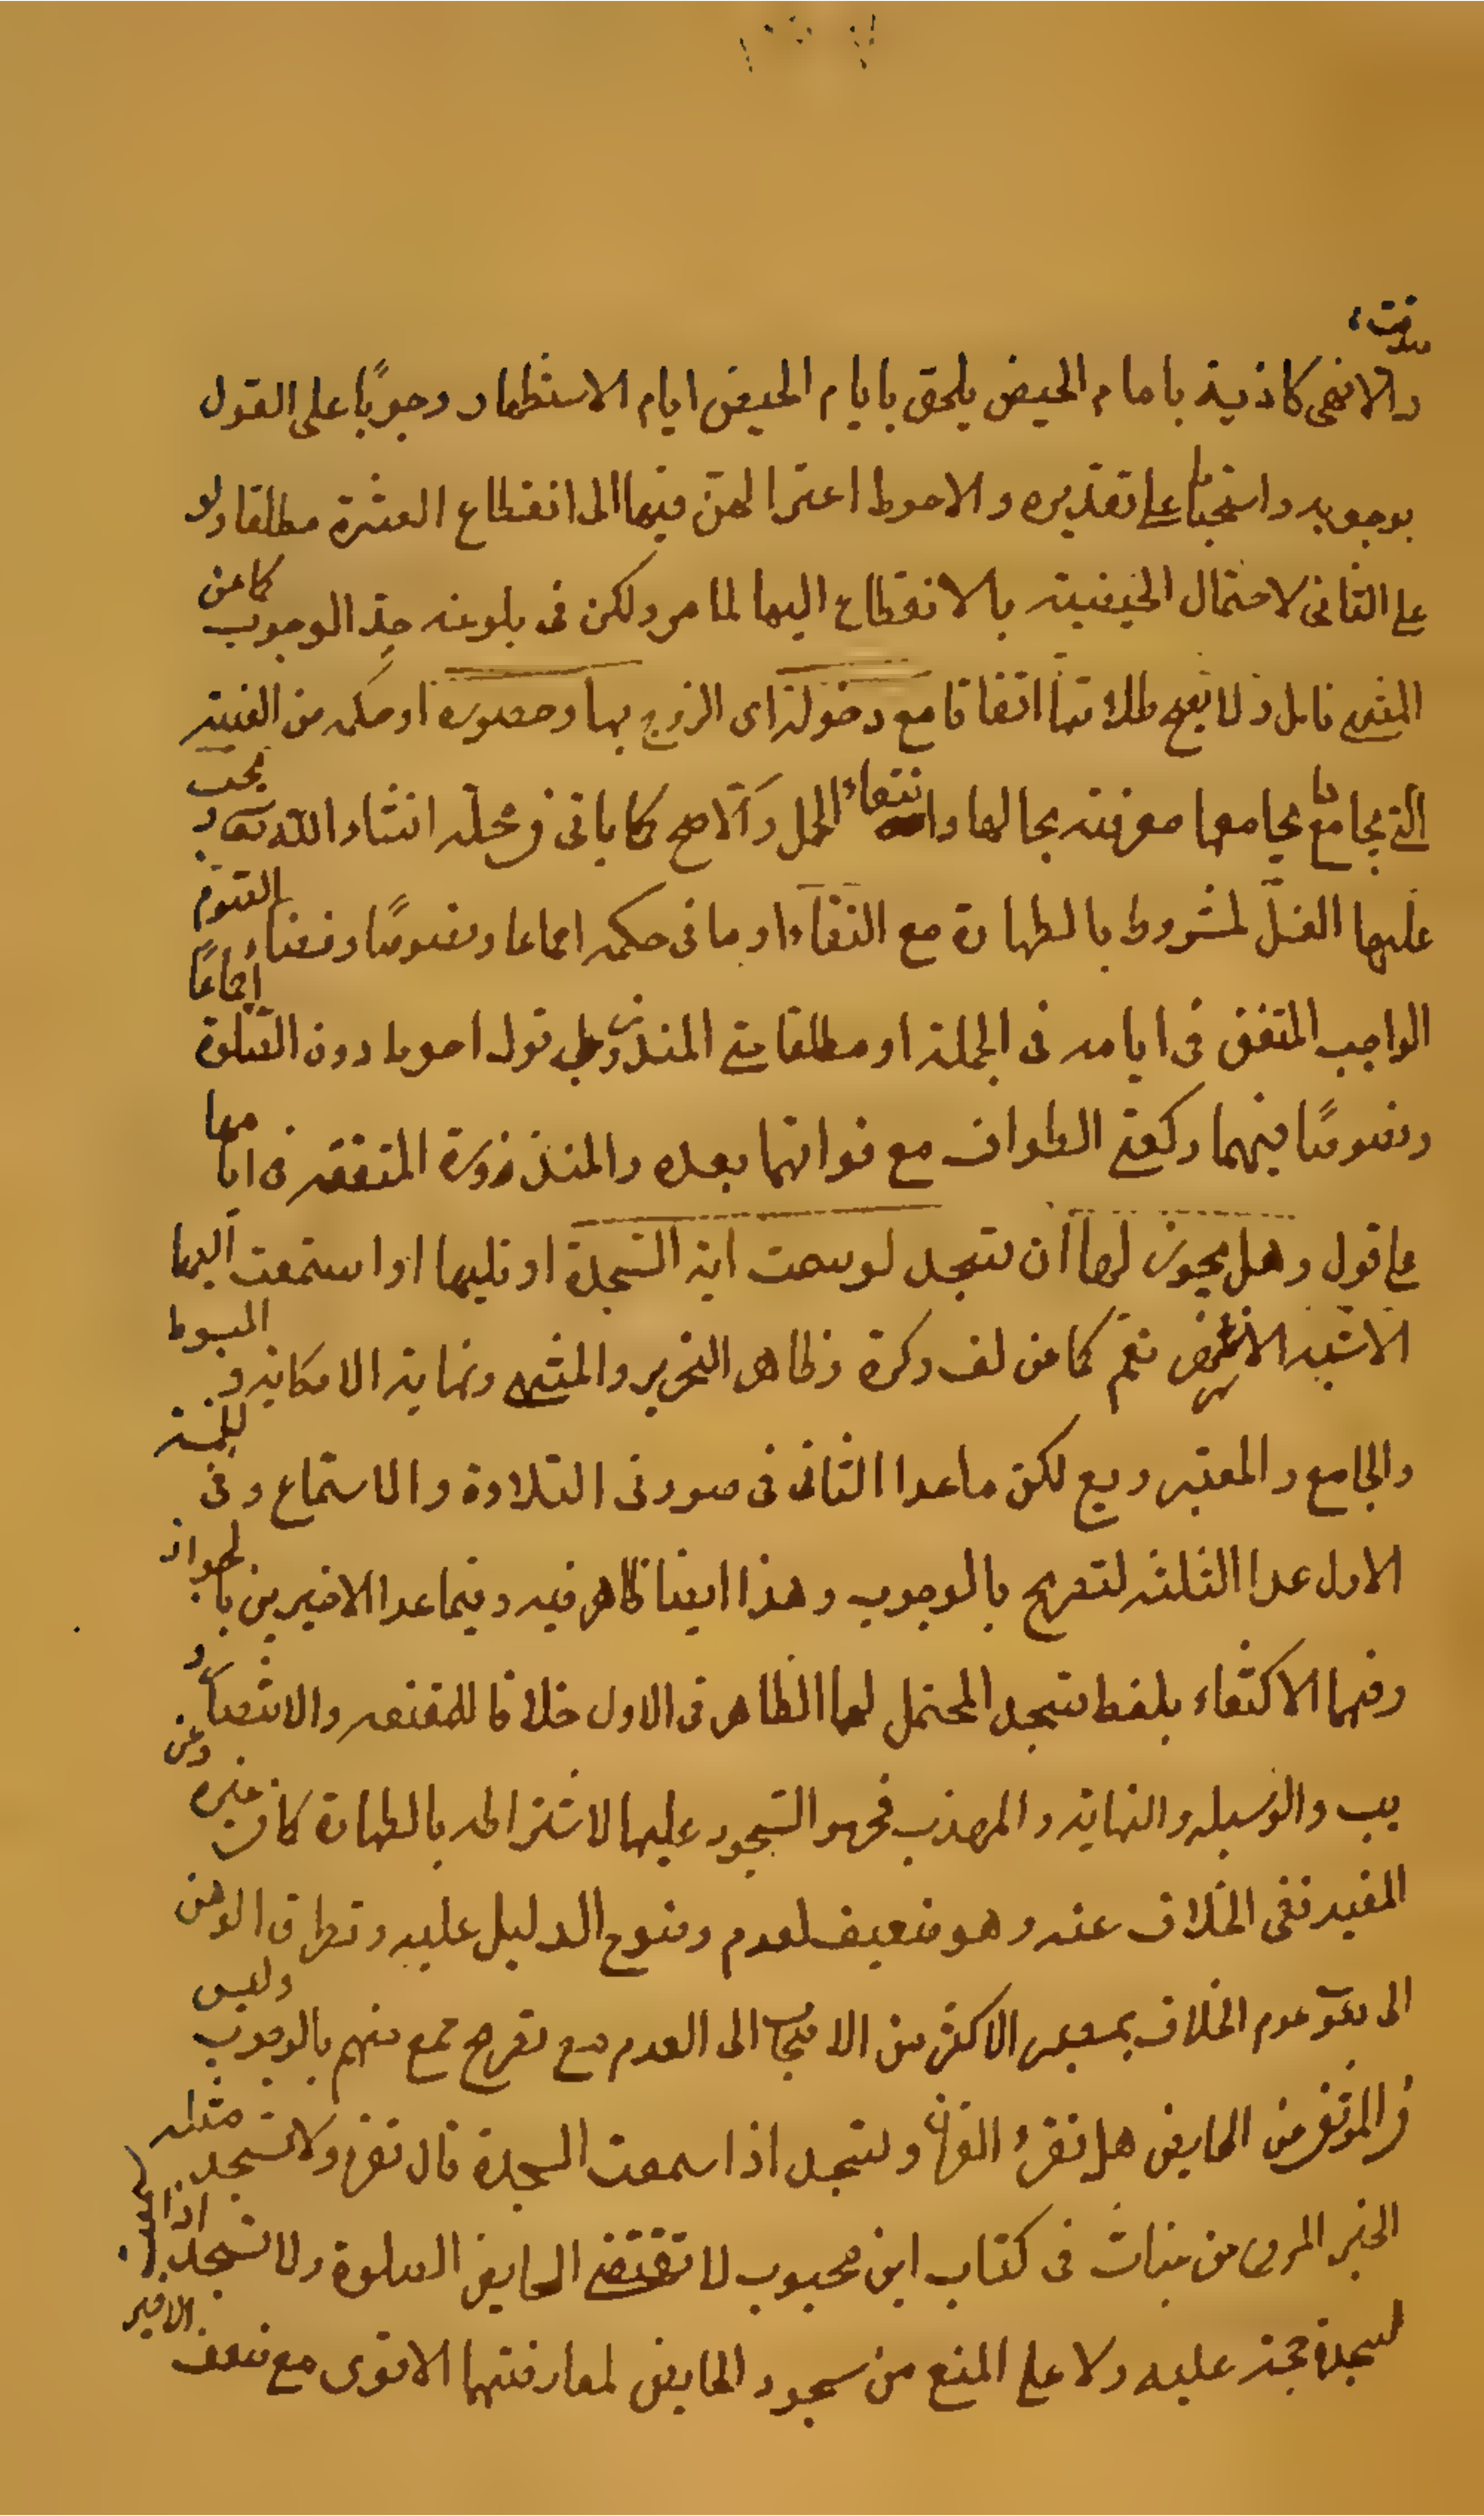 صدقت
والا فهي كاذبة باما م الحيض يلحق بايام الحيض ايام الاستظهار وجوبًا على القول
بوجوبه واستحبابا على تقديره والاحوط اعتزالهن فيها الى انقطاع العشرة مطلقا ولو
على الثاني لاحتمال الحيضية بالانقطاع اليها لما مر ولكن في بلوغه حد الوجوب كما عن
المنتهى تامل ولا يصح طلاقها اتفاقا مع دخوله اى الزوج بها وحضوره او حكمه من الغيبة
التي يجامع يجامعها معرفته بحالها وانتفاء الحمل والاصح كما ياتي في محله انشاء الله تعالى و يجب
عليها الغسل لمشروط بالطهارة مع النقاء او ما في حكمه اجماعا ونصوصًا وقضاء الصوم
الواجب المتفق في ايامه في الجملة او مطلقا حتى المنذور على قول احوط دون الصلوة اجماعًا
ونصوصًا فيهما وركعتي الطواف مع فواتهما بعده والمنذورة المتفقه في ايامها
على قول وهل يجوز لها ان تسجد لو سمعت اية السجدة او تليها او استمعت اليها
الاشبه الاظهر نعم كما عن لف وكرة وظاهر التحرير والمنتهى ونهاية الاحكام و المبسوط
والجامع والمعتبر ويع لكن ما عدا الثاني في صورتى التلاوة والاستماع وفي
الاول عدا الثلثه لتصريح بالوجوب وهذا ايضا ظاهر فيه وفيما عدا الاخيرين بالجواز
وفيهما الاكتفاء بلفظ تسجد المحتمل لهما الظاهر في الاول خلافا للمقنعه والانتصار و
يب والوسيله والنهاية والمهذب فحرموا السجود عليها لاشتراطه بالطهارة كما فى غيره وعن
المفيد نفى الخلاف عنه وهو ضعيف لعدم وضوح الدليل عليه وتطرق الوهن
الى دعوى عدم الخلاف بمصير الاكثر من الاصحاب الى العدم مع تصريح جمع منهم بالوجوب وليس
في الموثق عن الحايض هل تقرء القران وتسجد اذا سمعت السجدة قال تقرء ولا تسجد مثله
الخبر المروى عن غياث فى كتاب ابن محبوب لا تقتضى الحايض الصلوة ولا تسجد اذا
لسجدة حجة عليه ولا على المنع من سجود الحايض لمعارضتهما الاقوى مع ضعف الاخير